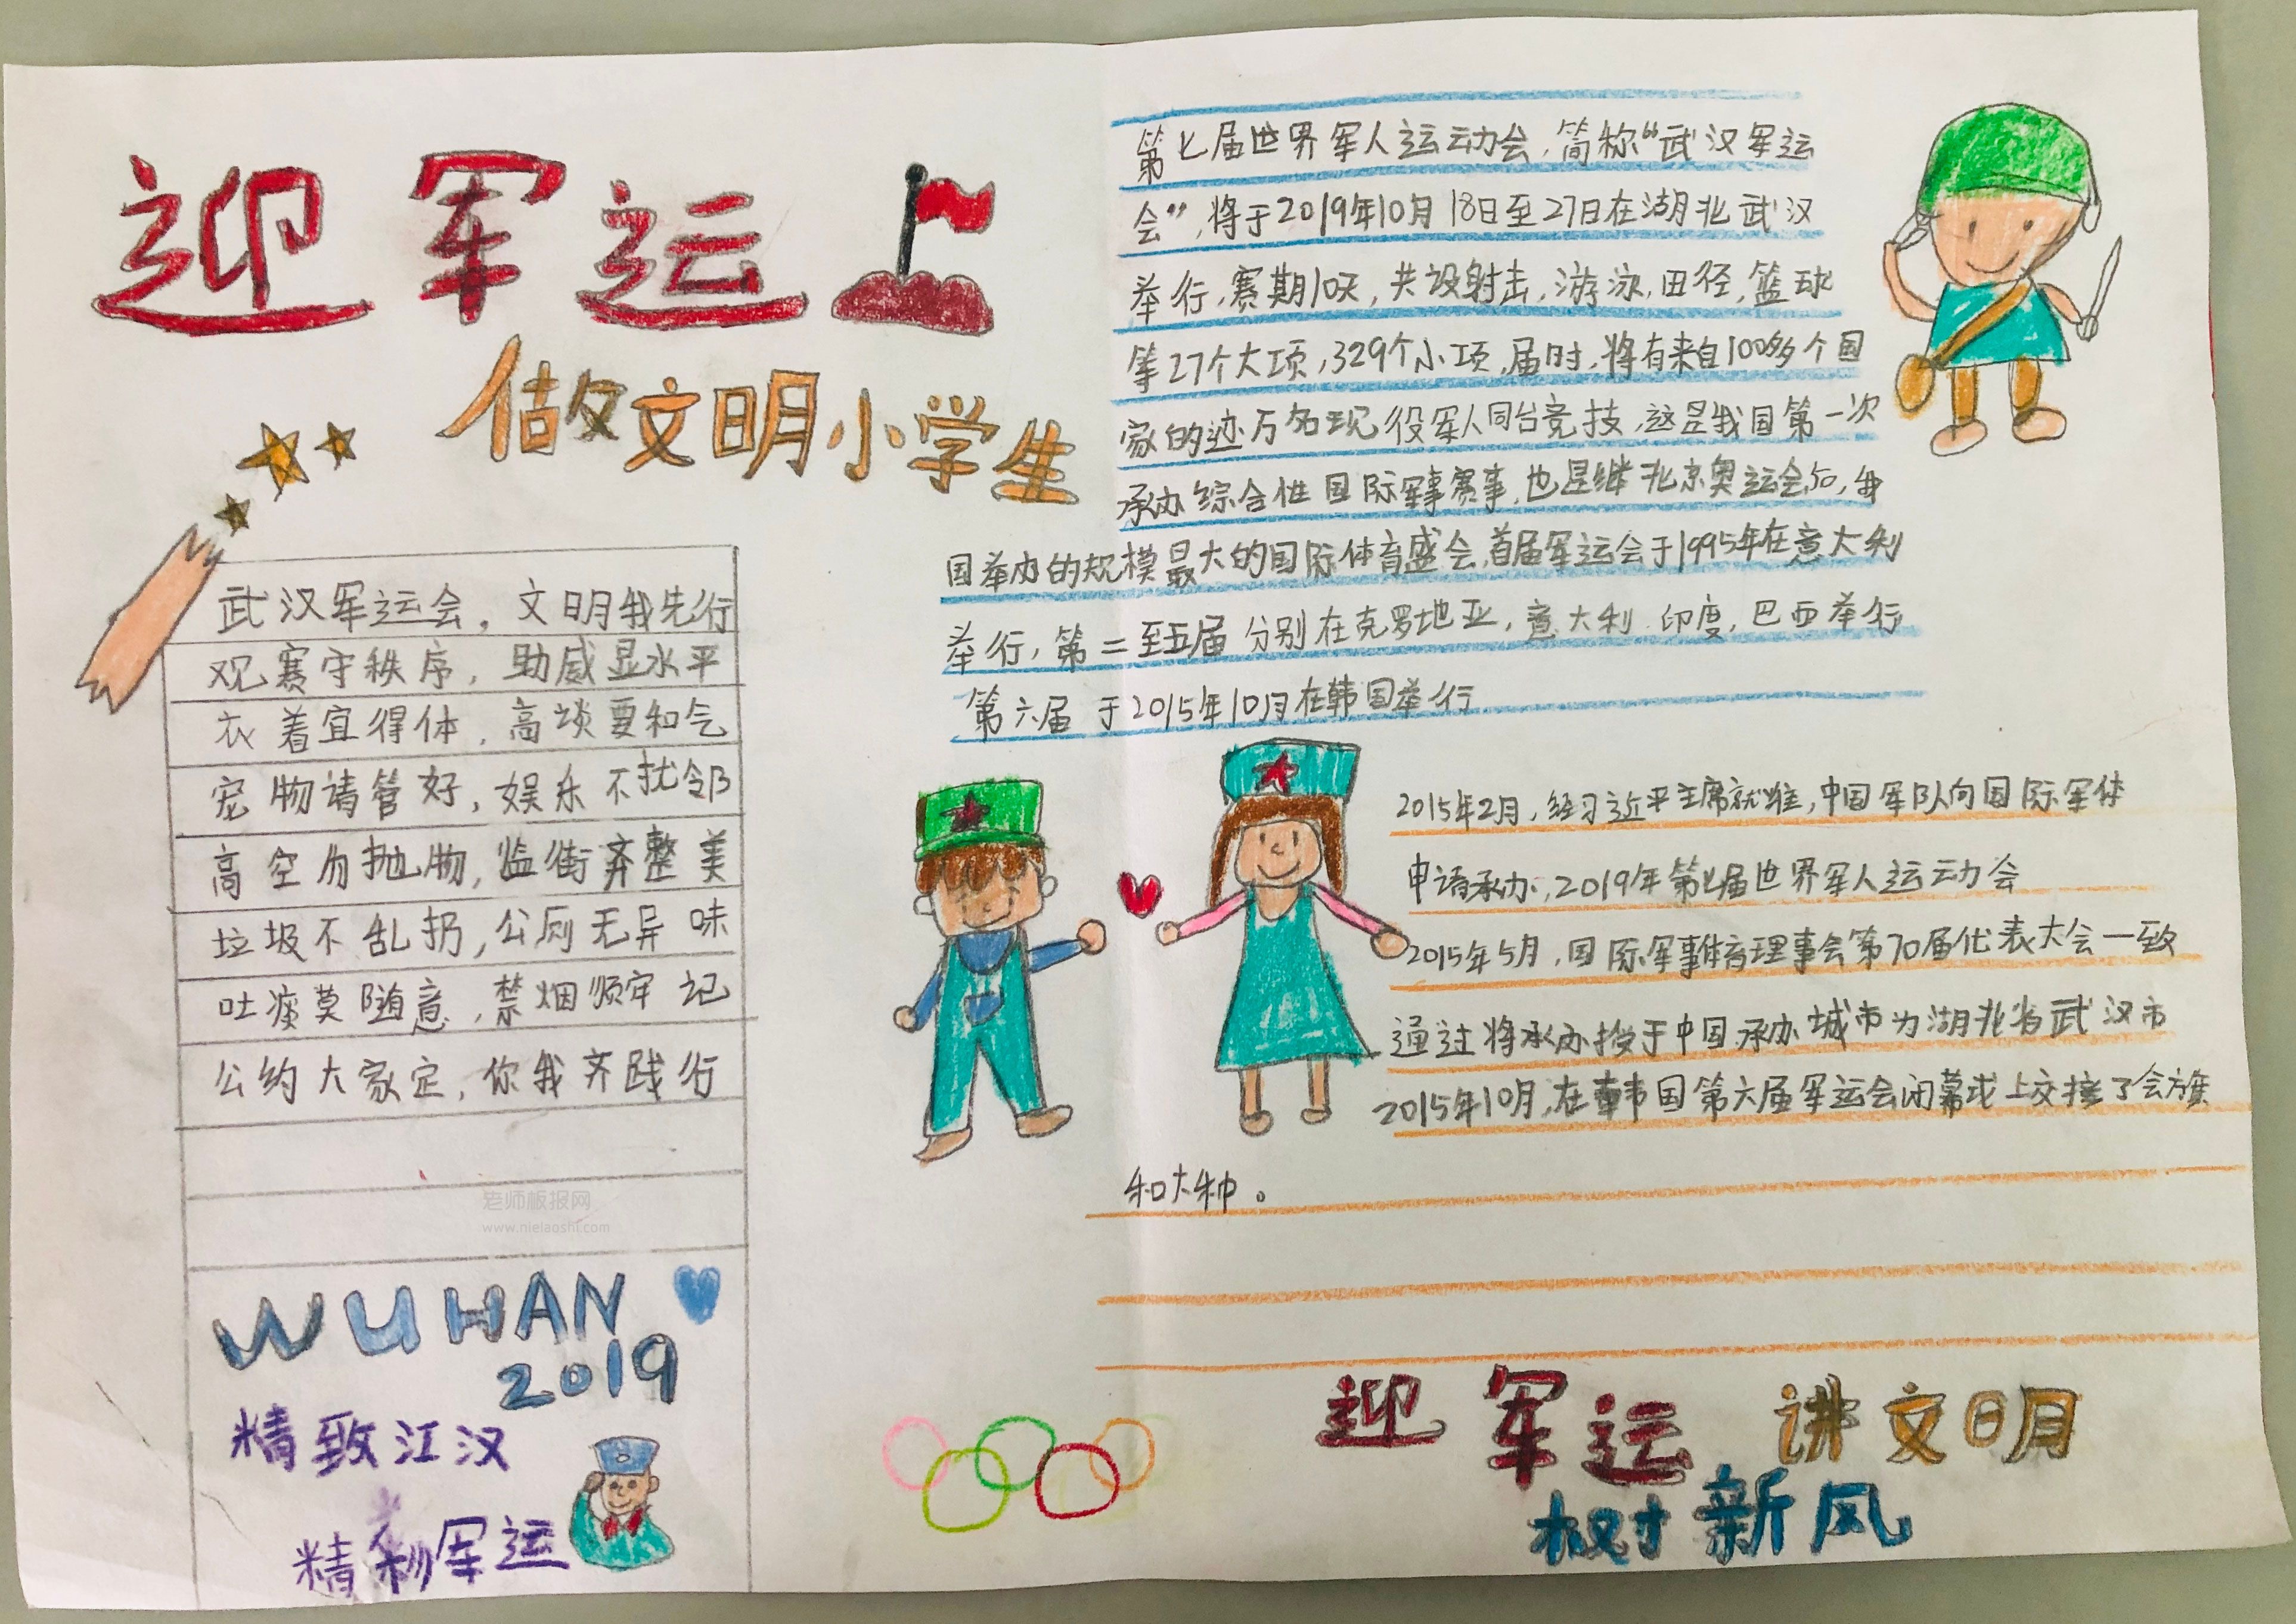 迎军运
做文明小学生
武汉军运会，文明我先行
观赛守秩序，助威显水平
衣着宜得体，高谈要和气
宠物请管好，娱乐不扰邻
高空勿抛物，临街齐整美
垃圾不乱扔，公厕无异味
吐痰莫随意，禁烟须牢记
公约大家定，你我齐践行
老师板报网
www.nielaoshi.com
WUHAN
2019
精致江汉
精彩军运
第七届世界军人运动会，简称“武汉军运
会”，将于2019年10月18日至27日在湖北武汉
举行，赛期10天，共设射击，游泳，田径，篮球
等27个大项，329个小项，届时，将有来自100多个国
家的近万名现役军人同台竞技，这是我国第一次
承办综合性国际军事赛事，也是继北京奥运会后，我
国举办的规模最大的国际体育盛会，首届军运会于1995年在意大利
举行，第二至五届分别在克罗地亚，意大利，印度，巴西举行
第六届于2015年10月在韩国举行
2015年2月，经习近平主席就准，中国军队向国际军体
申请承办，2019年第七届世界军人运动会
2015年5月，国际军事体育理事会第70届代表大会一致
通过将承办授于中国承办城市为湖北省武汉市
2015年10月，在韩国第六届军运会闭幕式上交接了会旗
和大种。
迎军运 讲文明
树新风